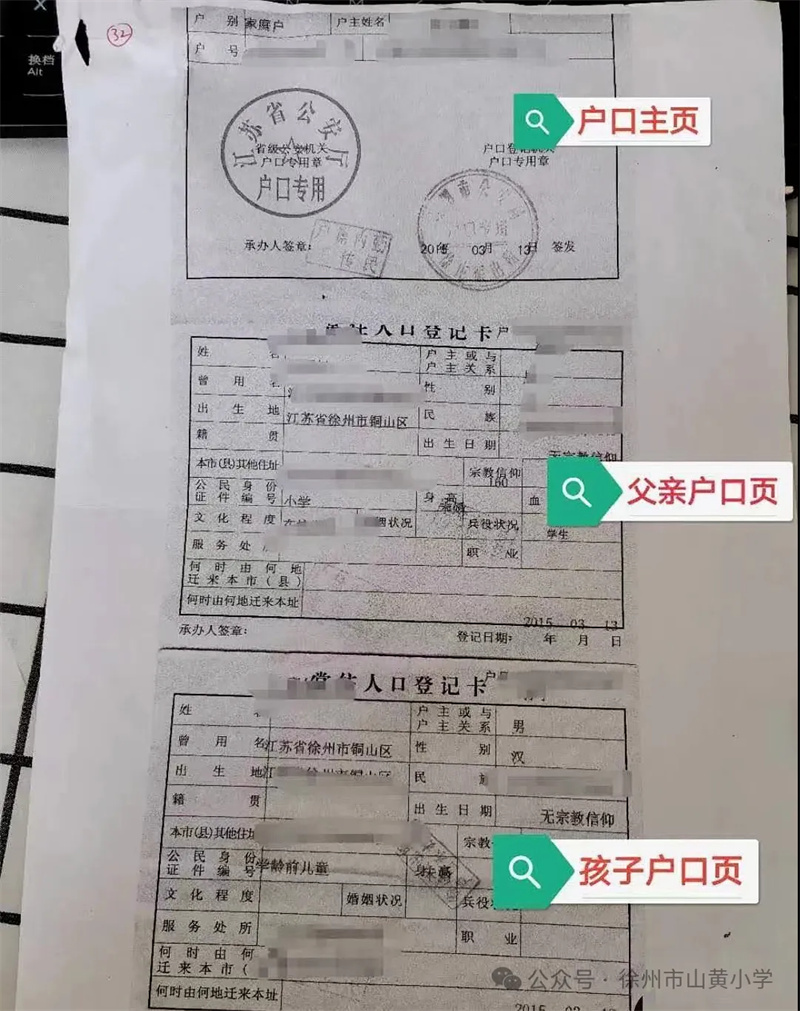 换档
Alt
32
户 别 家庭户 户主姓名
户 号
江苏省公安厅
户口专用
省级公安机关
户口专用章
户口主页
户口登记机关
户口专用章
承办人签章:
2015 03月 13日 签发
常住人口登记卡 户
姓
户主或与
户主关系
曾 用 名
性 别
出 生 地 江苏省徐州市铜山区 民 族
籍 贯
出生日期
无宗教信仰
本市(县)其他住址
宗教信仰
160
公民身份
证件编号 小学
身高
血
父亲户口页
文化程度
婚姻状况
兵役状况
学生
服务处
职 业
何时由何地
迁来本市(县)
何时由何地迁来本址
承办人签章:
登记日期: 2015 年 03 月 13 日
常住人口登记卡 户
姓
户主或与
户主关系 男
曾 用 名 江苏省徐州市铜山区 性 别
汉
出 生 地 徐州市铜山区 民
籍 贯
出生日期 无宗教信仰
本市(县)其他住址
宗教
公民身份
证件编号 学龄前儿童
身
孩子户口页
文化程度 婚姻状况 兵役
服务处所
职 业
何时由何
迁来本市(
何时由何地迁来本址
2015 03
公众号·徐州市山黄小学